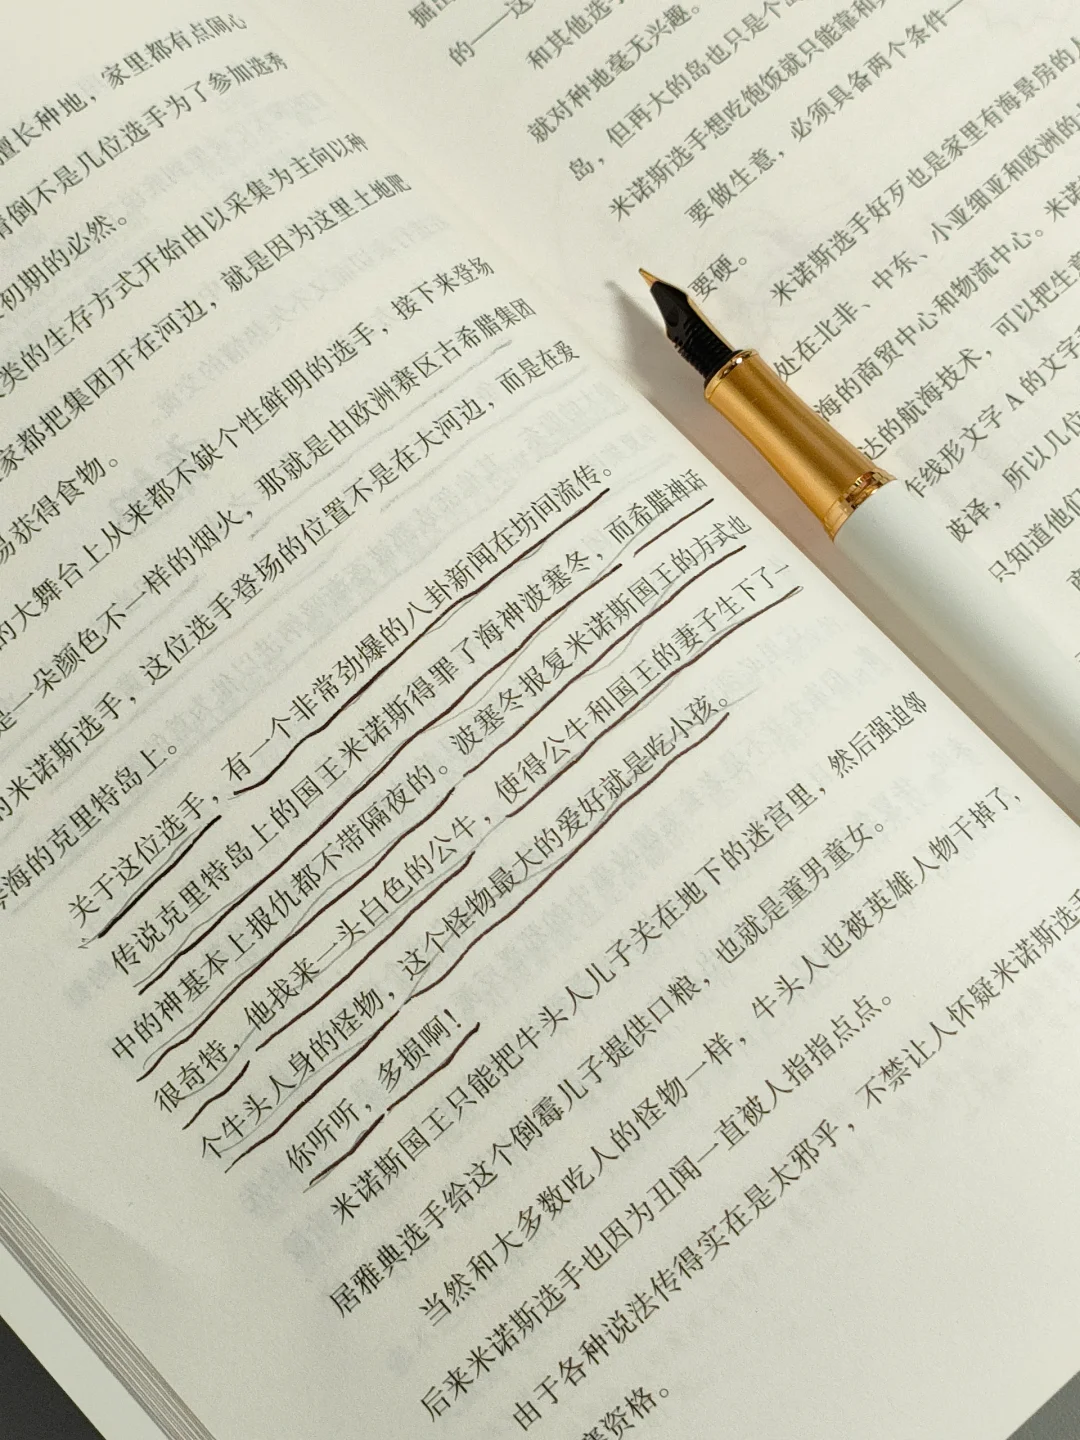 擅长种地，家里都有点闹心
倒不是几位选手为了参加选秀
初期的必然。
类的生存方式开始由以采集为主向以种
家都把集团开在河边，就是因为这里土地肥
易获得食物。
的大舞台上从来都不缺个性鲜明的选手，接下来登场
是一朵颜色不一样的烟火，那就是由欧洲赛区古希腊集团
的米诺斯选手，这位选手登场的位置不是在大河边，而是在爱
琴海的克里特岛上。
关于这位选手，有一个非常劲爆的八卦新闻在坊间流传。
传说克里特岛上的国王米诺斯得罪了海神波塞冬，而希腊神话
中的神基本上报仇都不带隔夜的。波塞冬报复米诺斯国王的方式也
很奇特，他找来一头白色的公牛，使得公牛和国王的妻子生下了一
个牛头人身的怪物，这个怪物最大的爱好就是吃小孩。
你听听，多损啊！
米诺斯国王只能把牛头人儿子关在地下的迷宫里，然后强迫邻
居雅典选手给这个倒霉儿子提供口粮，也就是童男童女。
当然和大多数吃人的怪物一样，牛头人也被英雄人物干掉了，
后来米诺斯选手也因为丑闻一直被人指指点点。
由于各种说法传得实在是太邪乎，不禁让人怀疑米诺斯选手
赛资格。
的——这
和其他选手
就对种地毫无兴趣。
岛，但再大的岛也只是个岛
米诺斯选手想吃饱饭就只能靠和
要做生意，必须具备两个条件——
要硬。
米诺斯选手好歹也是家里有海景房的人
处在北非、中东、小亚细亚和欧洲的
海的商贸中心和物流中心。米诺
达的航海技术，可以把生意
线形文字 A 的文字
破译，所以几位
只知道他们